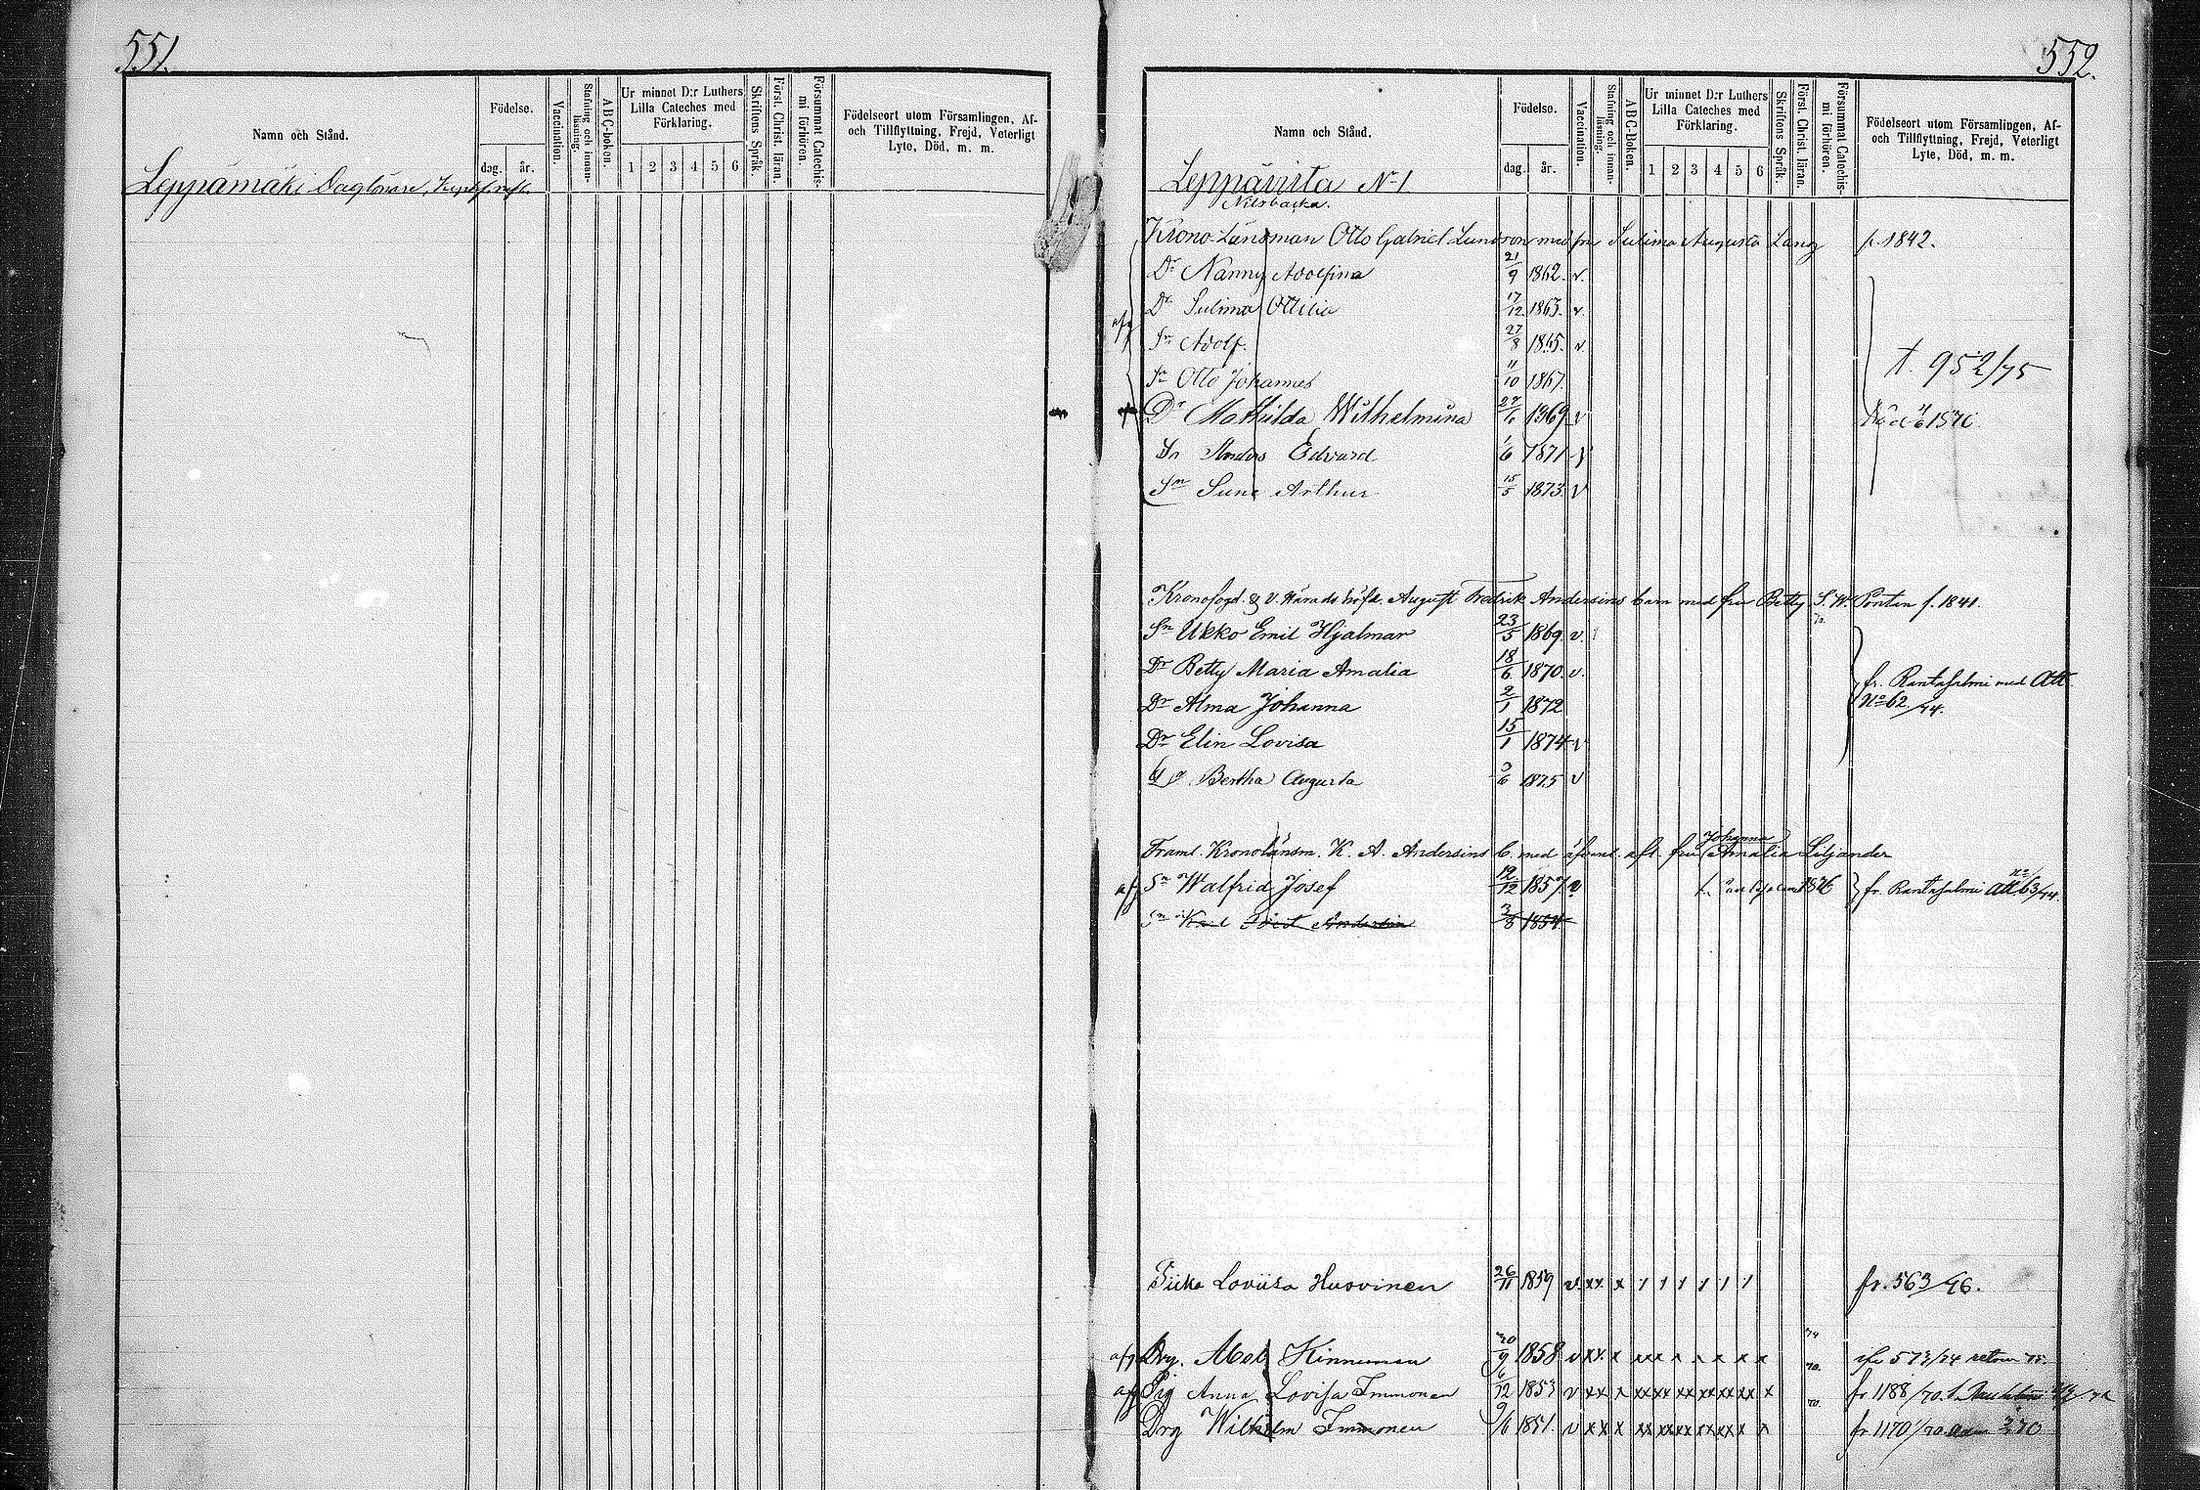 551.
Namn och Stånd.
Födelse.
dag.
år.
Vaccination.
Stafning och innan-
läsning.
ABC-boken.
Ur minnet D:r Luthers
Lilla Cateches med
Förklaring.
1 2 3 4 5 6
Skriftens Språk.
Först. Christ. läran.
Försummat Catechis-
mi förhören.
Födelseort utom Församlingen, Af-
och Tillflyttning, Frejd, Veterligt
Lyte, Död, m. m.
Leppämäki
552.
Namn och Stånd.
Födelse.
dag.
år.
Vaccination.
Stafning och innan-
läsning.
ABC-boken.
Ur minnet D:r Luthers
Lilla Cateches med
Förklaring.
1 2 3 4 5 6
Skriftens Språk.
Först. Christ. läran.
Försummat Catechis-
mi förhören.
Födelseort utom Församlingen, Af-
och Tillflyttning, Frejd, Veterligt
Lyte, Död, m. m.
Leppävirta N:1
Nilsbacka.
Krono-Länsman Otto Gabriel med fru Augusta Lang f. 1842.
Dr Nanny Adolfina 21/9 1862. v.
Dr Ottilia 17/12 1863. v.
Sn Adolf. 27/8 1865. v.
Sn Otto Johannes 11/10 1867.
t. 952/75
Dr Mathilda Wilhelmina 27/6 1869 v
Sn Anders Edvard 1/6 1871 v
Sn Sune Arthur 15/5 1873 v
Kronofogd. & v. Häradshöfd. August Fredrik Andersins barn med fru Betty S. W. Pontan f. 1841.
Sn Ukko Emil Hjalmar 23/5 1869 v.
Dr Betty Maria Amalia 18/6 1870. v.
Dr Alma Johanna 2/1 1872
fr. Rantasalmi med Att
No 62/74.
Dr Elin Lovisa 15/1 1874 v
Dr Bertha Augusta 1875 v
Johanna
Framl. Kronolänsm. K. A. Andersins b. med äfvenl. afl. fru Amalia Liljander
afg Sn Walfrid Josef 12/12 1857 v 1876 fr. Rantasalmi Att. No 63/74.
Sn Andersin 3/8 1854
Piika Loviisa Huovinen 26/11 1859 v. xx x 1 1 1 1 1 1 fr. 563/76.
afg Drg. Abel Kinnunen 1858 v xx x
573/74 retour 75.
afg Pig Anna Lovisa Immonen 6/12 1853 v xx x
fr 1188/70.
Drg Wilhelm Immonen 9/6 1851. v xx x
fr 1170/70